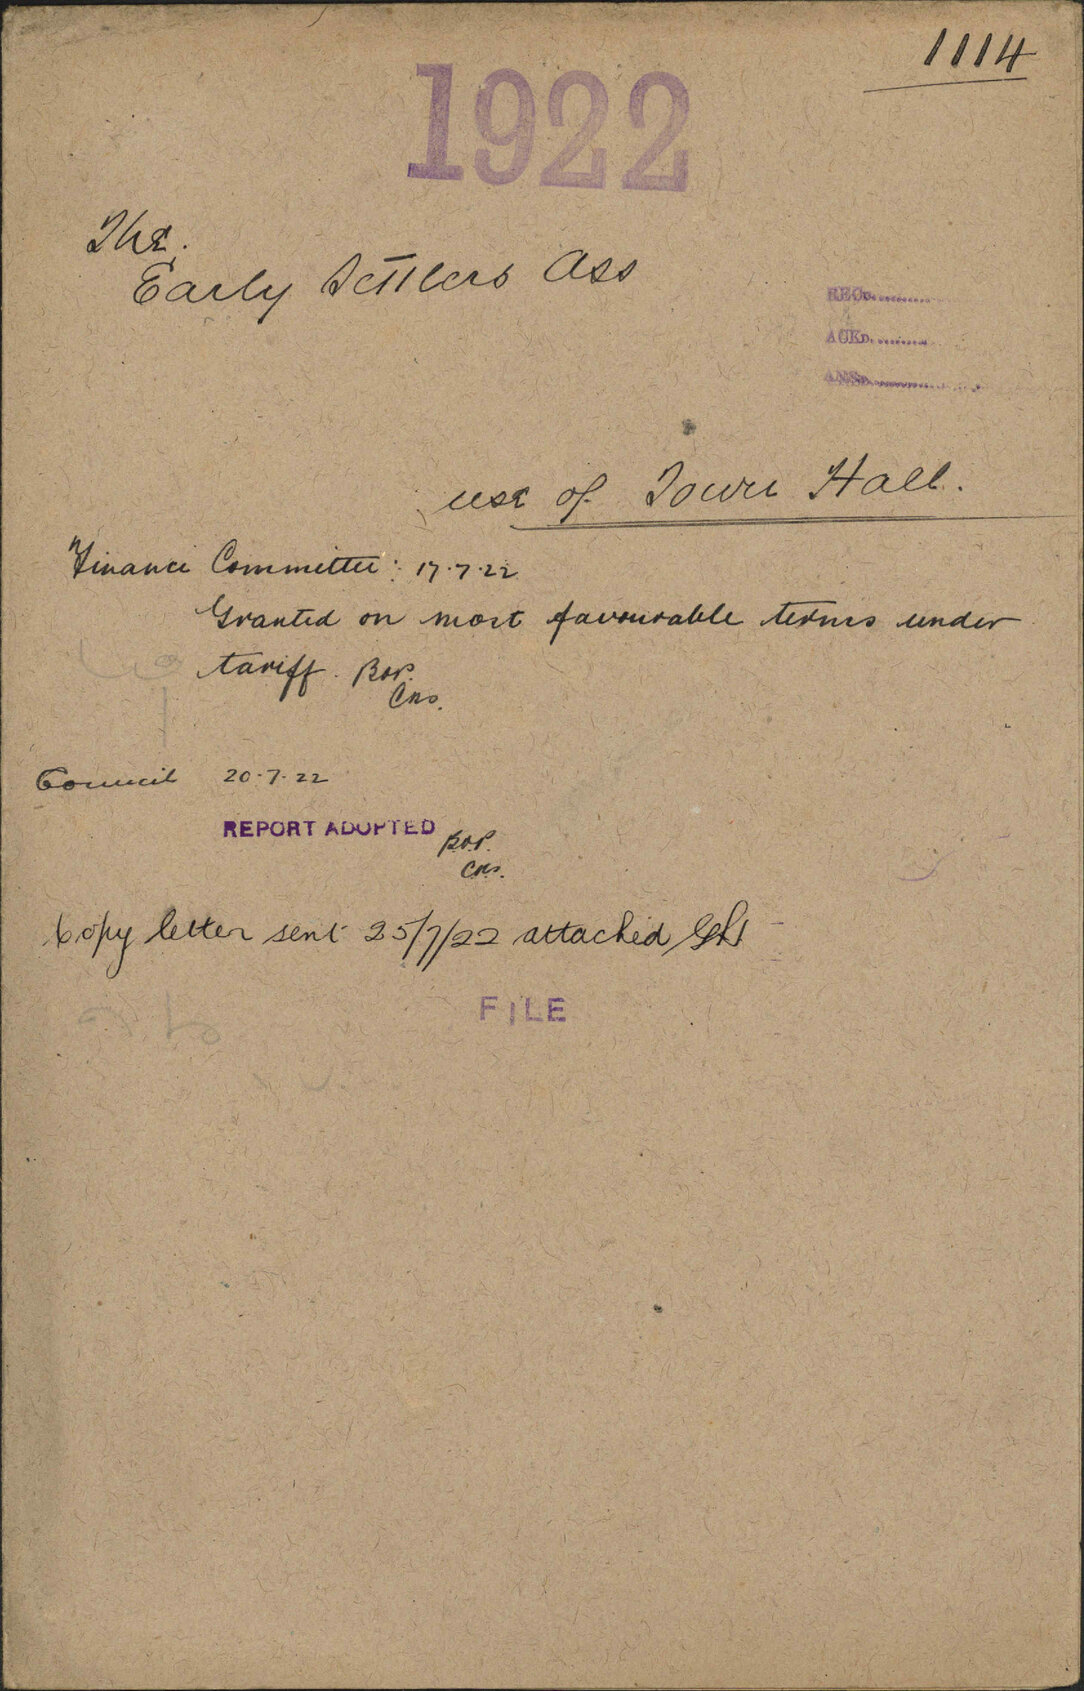 1114
1922
The
Early Settlers Ass
RECD............
ACKD...........
ANSD....................
use of Town Hall.
Finance Committee: 17.7.22
Granted on most favourable terms under
tariff.
Council 20.7.22
REPORT ADOPTED
Copy letter sent 25/7/22 attached
FILE